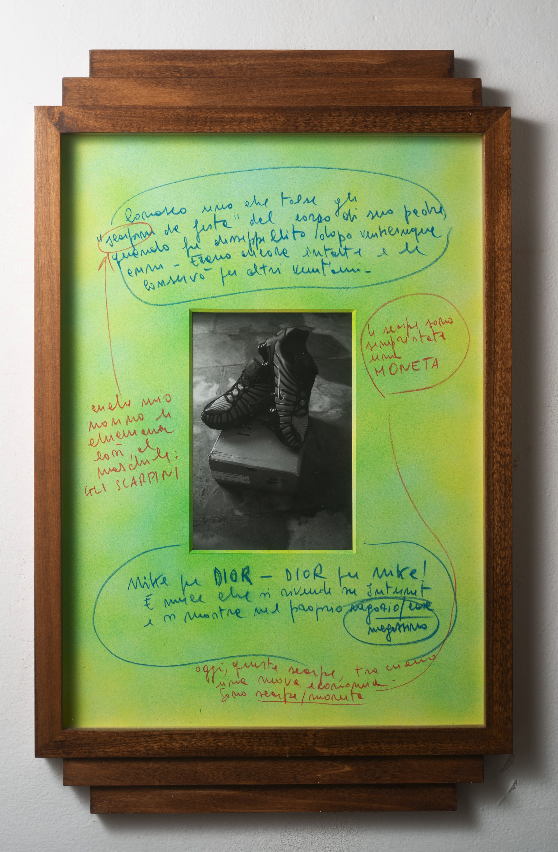 Conosco uno che tolse gli
"scarpini da festa" dal corpo di suo padre,
quando fu disseppellito dopo venticinque
anni - Erano ancora intatte e le
conservò per altri vent'anni -
Le scarpe sono
sempre state
una
MONETA
anche mio
nonno li
chiamava
così, al
maschile:
GLI SCARPINI
Nike per DIOR - DIOR per Nike!
E anche chi si rivende su Internet
e si mostra nel proprio negozio/
negozino
oggi, queste scarpe, tracciano
una nuova economia -
Sono scarpe/moneta